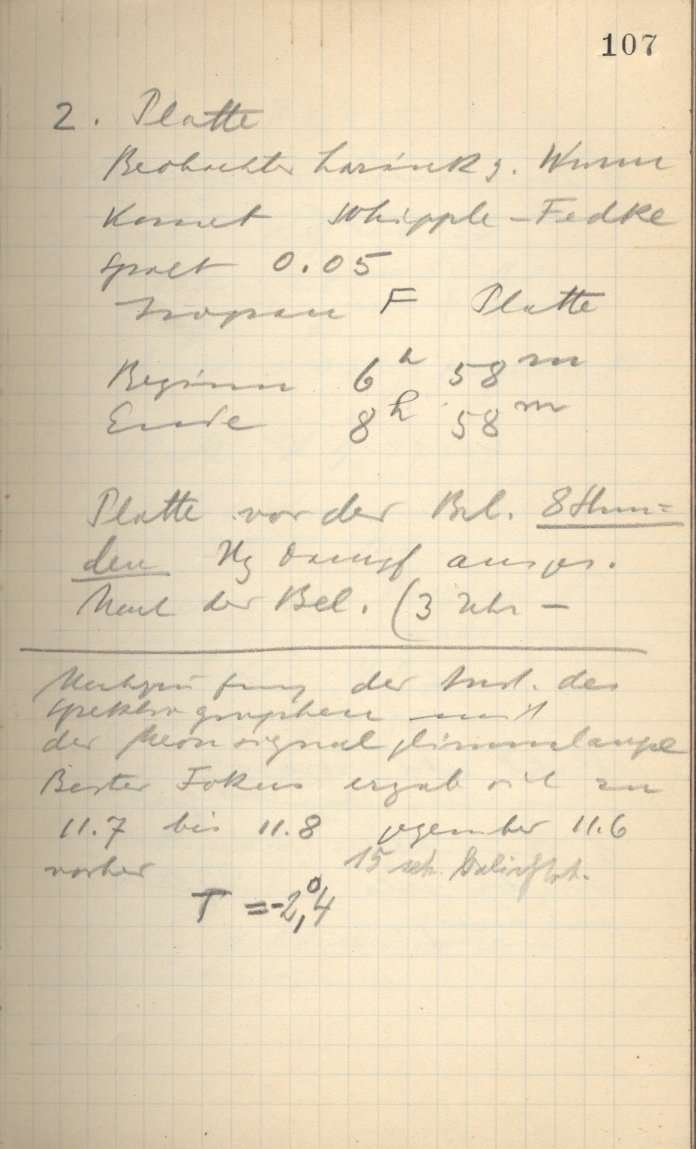 107
2. Platte
Beobachter Wurm
Komet Whipple-Fedke
Spalt 0.05
Isopan F Platte
Beginn 6h 58m
Ende 8h 58m
Platte vor der Bel. 8 Stun=
den Hg Dampf ausges.
Nach der Bel. (3 Uhr —
Nachprüfung der Just. des
Spektrographen mit
der Neonsignalglimmlampe
Bester Fokus ergab sich zu
11.7 bis 11.8 gegenüber 11.6
vorher 15 sek.
T = -2,°4